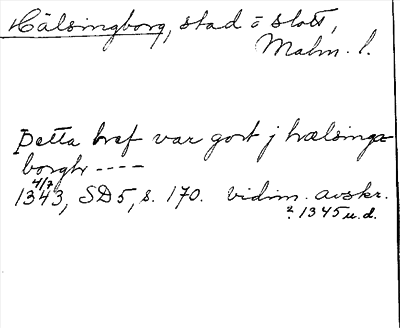 Hälsingborg, stad o slott,
Malm. l.
Þetta bref var gort j hælsinga-
borgh ----
4/7
1343, SD5, s. 170. vidim. avskr.
? 1345 u.d.